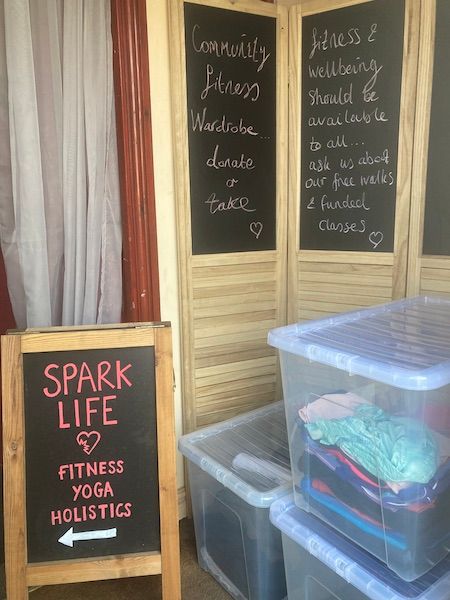 Community
fitness
Wardrobe...
donate
or
take
fitness &
wellbeing
should be
available
to all...
ask us about
our free walks
& funded
classes
SPARK
LIFE
FITNESS
YOGA
HOLISTICS